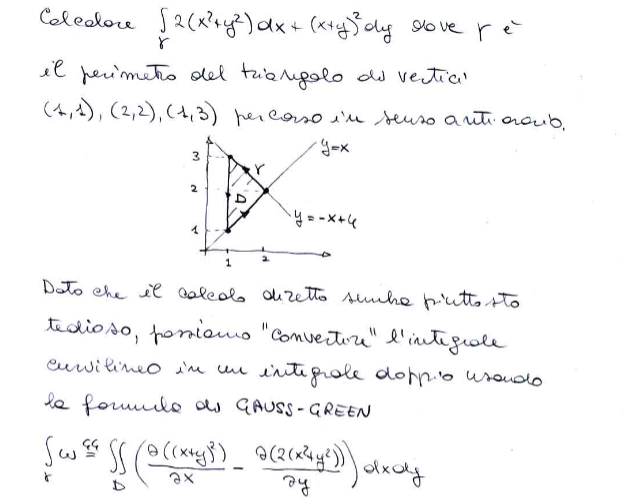 Calcolare ∫γ 2(x²+y²)dx + (x+y)²dy dove γ è
il perimetro del triangolo di vertici
(1,1), (2,2), (1,3) percorso in senso antiorario.
y=x
3
γ
2
D
y=-x+4
1
1 2
Dato che il calcolo diretto sembra piuttosto
tedioso, possiamo "convertire" l'integrale
curvilineo in un integrale doppio usando
la formula di GAUSS-GREEN
∫γ ω =^GG ∬D (∂((x+y)²)/∂x - ∂(2(x²+y²))/∂y) dxdy